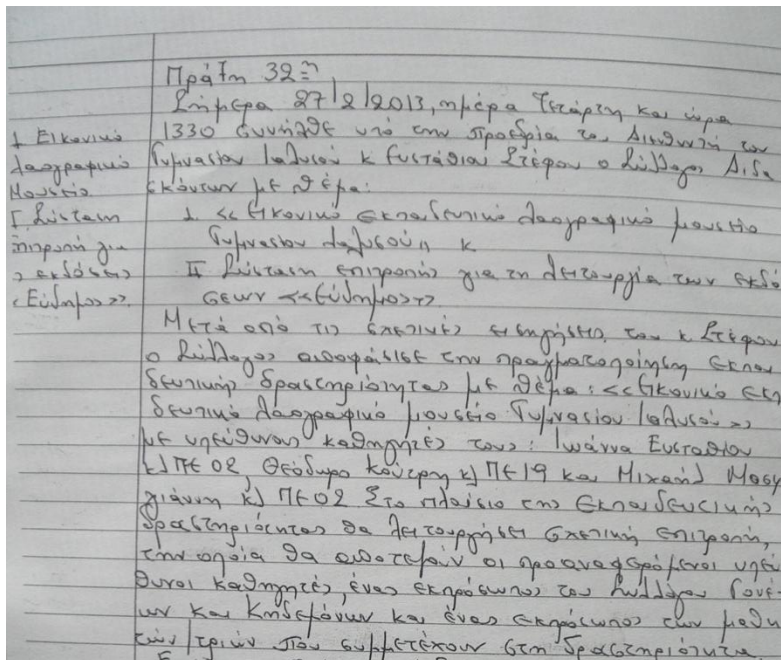 Πράξη 32η
Σήμερα 27/2/2013, ημέρα Τετάρτη και ώρα
1330 συνήλθε υπό την προεδρία του Διευθυντή του
Γυμνασίου Ιαλυσού κ Ευστάθιου Στέφου ο Σύλλογος Διδα
σκόντων με θέμα:
I. <<Εικονικό εκπαιδευτικό λαογραφικό μουσείο
Γυμνασίου Ιαλυσού,, κ
II Σύσταση επιτροπής για τη λειτουργία των εκδό
σεων <<Εύδημος>>
Μετά από τις σχετικές εισηγήσεις του κ Στέφου
ο Σύλλογος αποφάσισε την πραγματοποίηση εκπαι
δευτικής δραστηριότητας με θέμα: <<Εικονικό εκπ
δευτικό λαογραφικό μουσείο Γυμνασίου Ιαλυσού>>
με υπεύθυνους καθηγητές τους: Ιωάννα Ευσταθίου
κλ ΠΕ 02, Θεόδωρο Κούτρη κλ ΠΕ19 και Μιχαήλ Μαστ
γιάννη κλ ΠΕ02 Στο πλαίσιο της εκπαιδευτικής
δραστηριότητας θα λειτουργήσει σχετική επιτροπή,
την οποία θα αποτελούν οι προαναφερόμενοι υπεύ
θυνοι καθηγητές, ένας εκπρόσωπος του Συλλόγου Γονέ
ων και Κηδεμόνων και ένας εκπρόσωπος των μαθη
τών/τριών που συμμετέχουν στη δραστηριότητα.
I Εικονικό
λαογραφικό
Μουσείο
I. Σύσταση
επιτροπή για
> εκδόσεις
<Εύδημος>>.